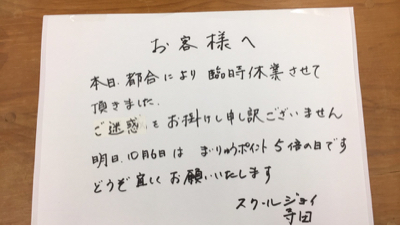 お客様へ
本日、都合により臨時休業させて
頂きました。
ご迷惑をお掛けし申訳ございません
明日、10月6日は まりゅうポイント5倍の日です
どうぞ宜しくお願いいたします
スクールジョイ
寺田